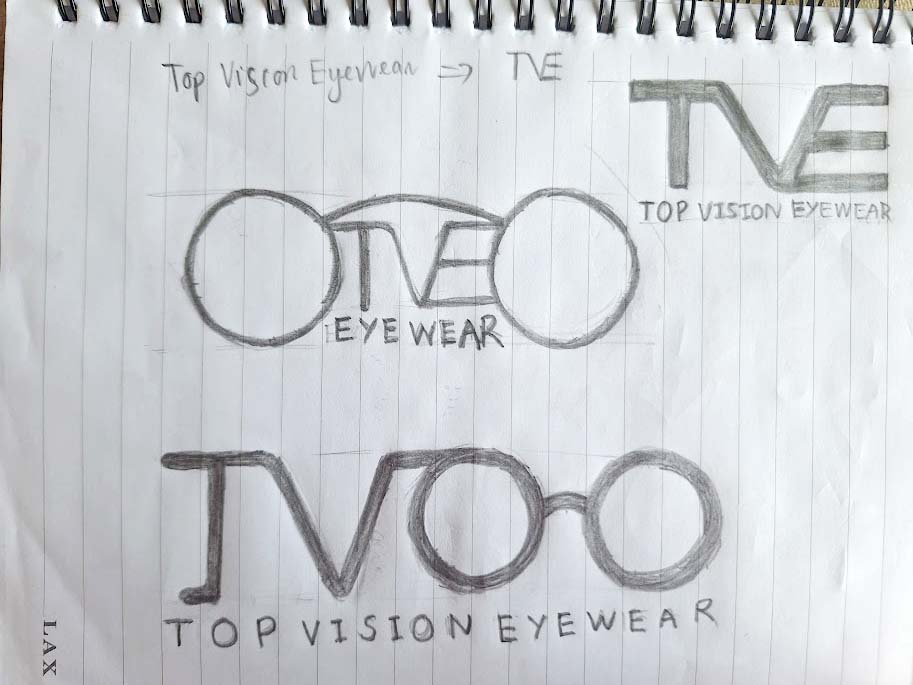 Top Vision Eyewear ⇒ TVE
TVE
TOP VISION EYEWEAR
TVE
EYEWEAR
TV
TOP VISION EYEWEAR
LAX